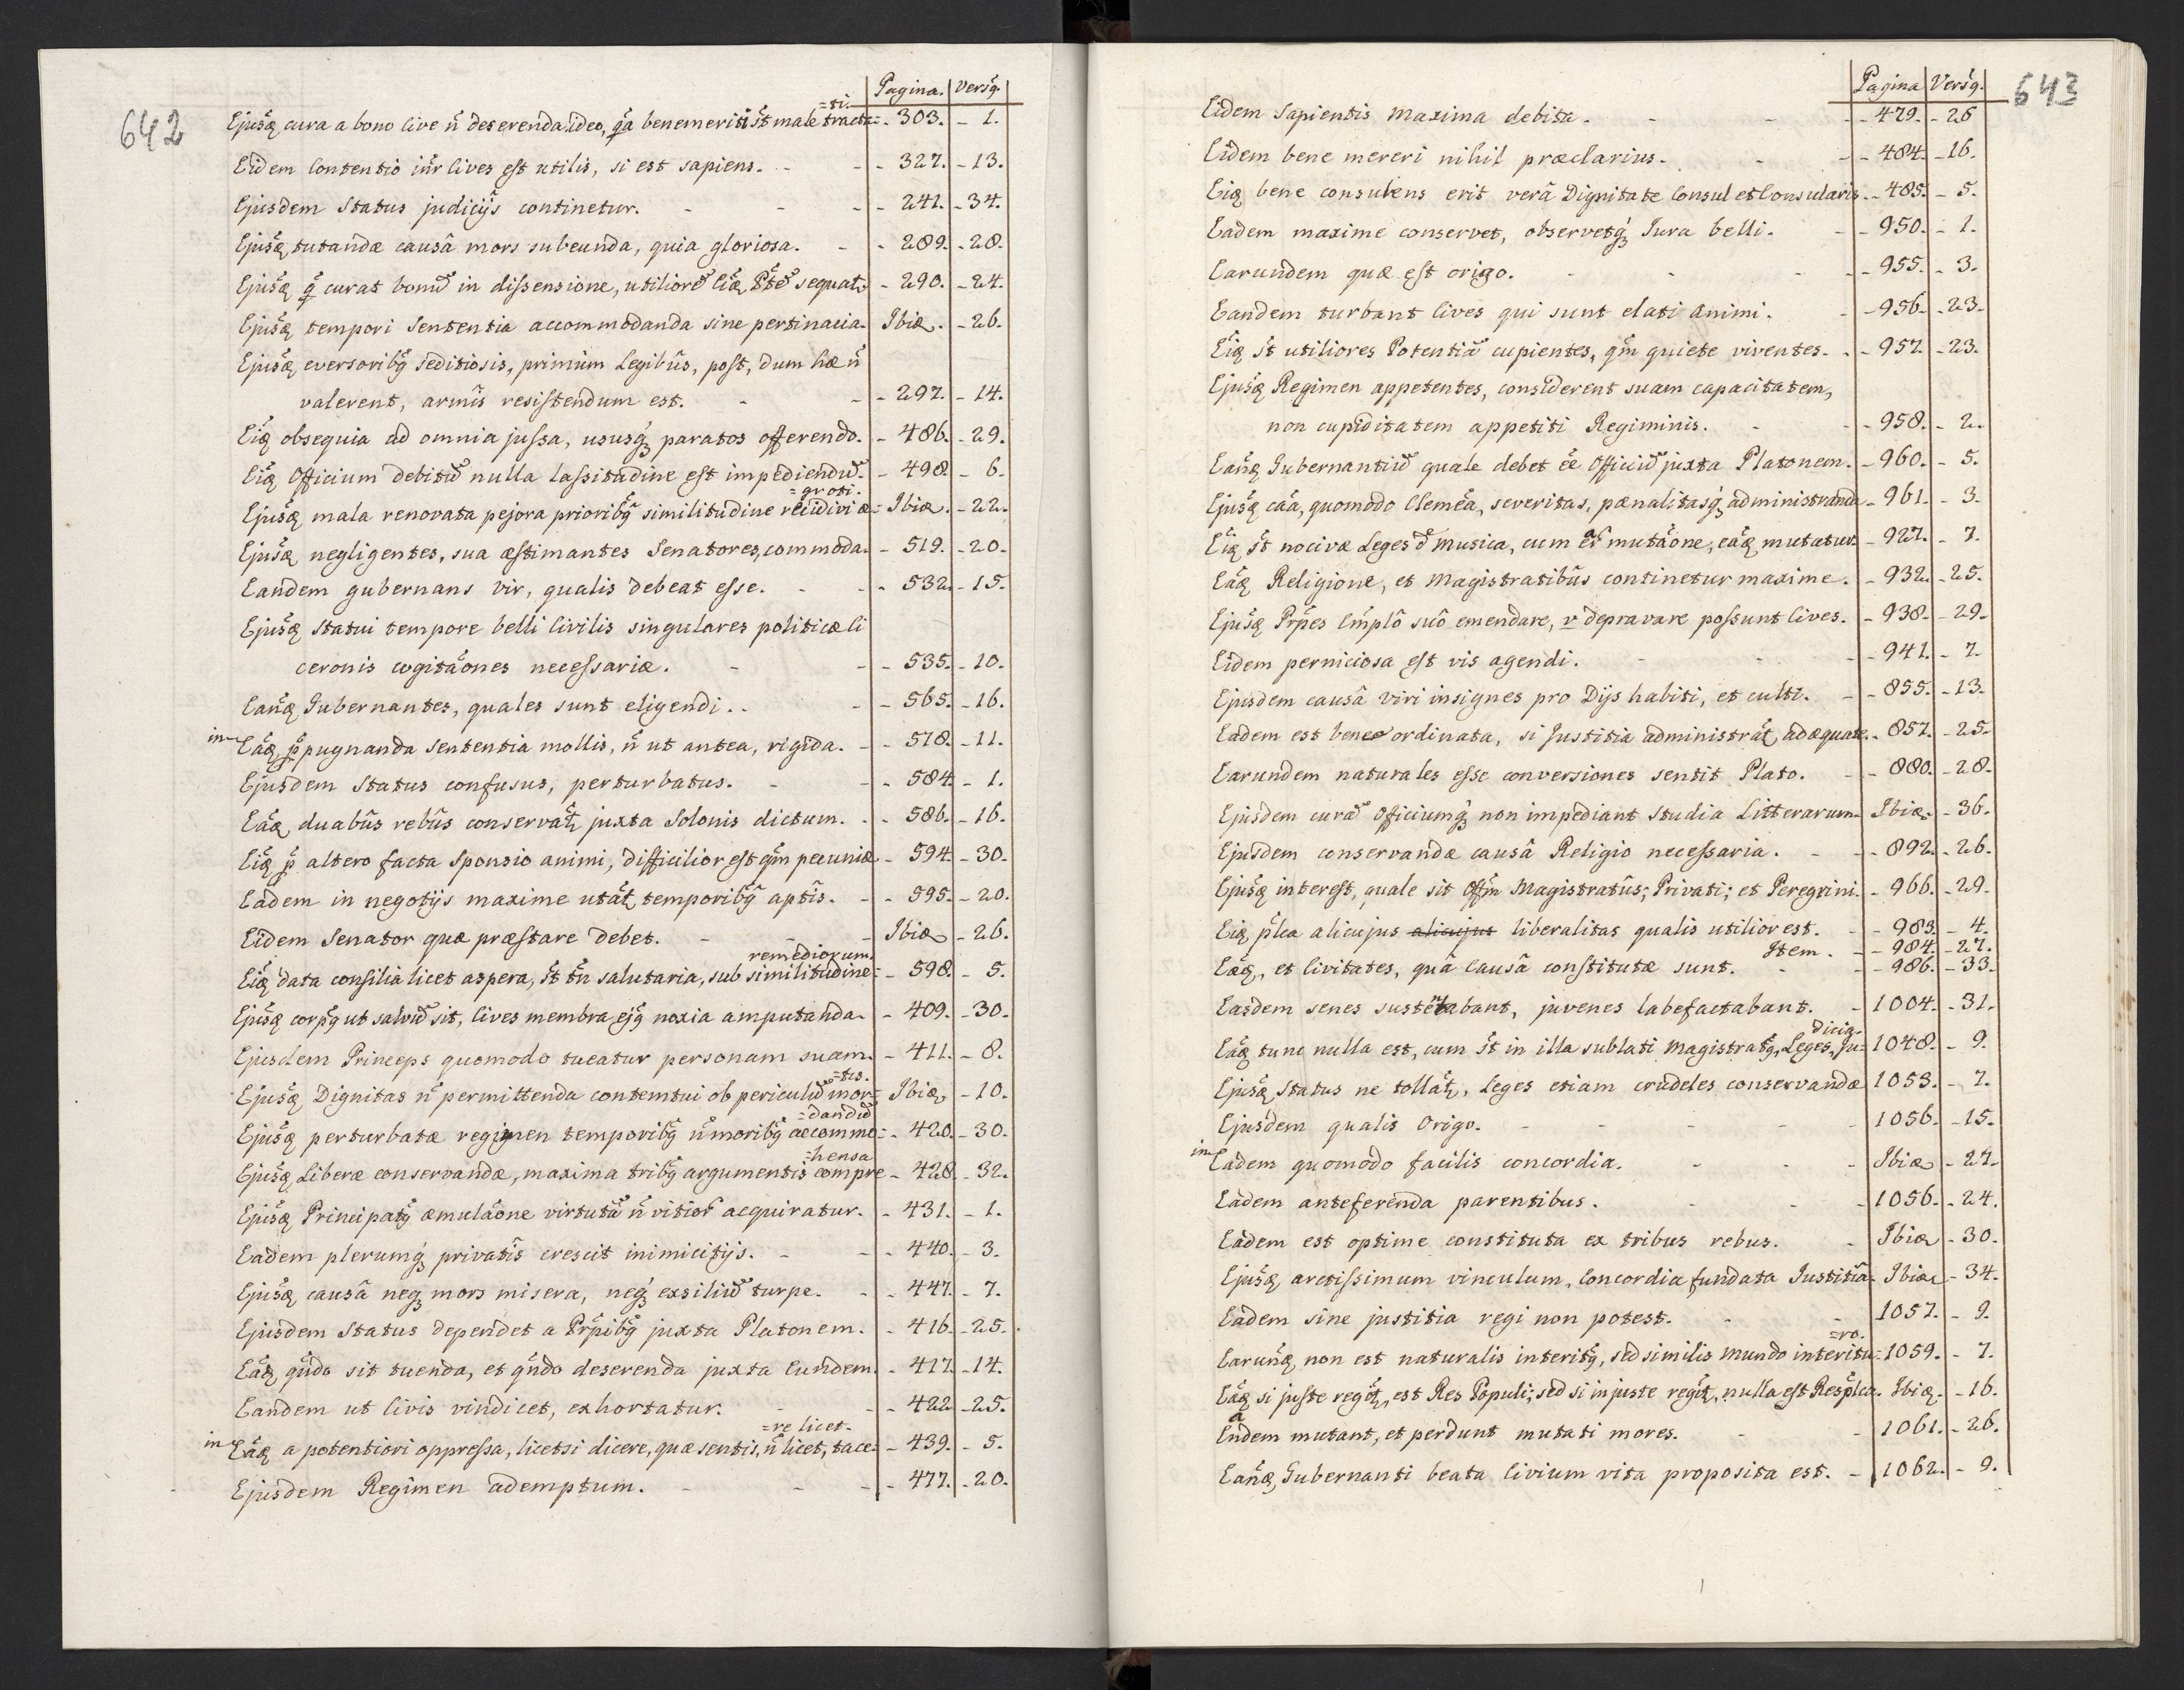 642
Pagina. Versq.
=ti.
Ejusq̃ cura a bono Cive ñ deserenda ideo, q̃a benemeriti st̃ male tracta= - 303. - 1.
Eidem Contentio int̃r Cives est utilis, si est sapiens. - - 327. - 13.
Ejusdem Status judicijs continetur. - - - 241. - 34.
Ejusq̃ tutandæ causâ mors subeunda, quia gloriosa. - - 289. - 28.
Ejusq̃ q̃ curat bonũ in dissensione, utiliorẽ Eiq̃ Ptẽ sequat. - 290. - 24.
Ejusq̃ tempori Sententia accommodanda sine pertinacia. Ibiq. - 26.
Ejusq̃ eversoribq̃ seditiosis, primùm Legibûs, post, dum hæ ñ
valerent, armîs resistendum est. - - 297. - 14.
Eiq̃ obsequia ad omnia jussa, ususq́ paratos offerendo. - 486. - 29.
Eiq̃ Officium debitũ nulla lassitudine est impediendũ. - 498. - 6.
=groti.
Ejusq̃ mala renovata pejora prioribq̃ similitudine recidivi æ= Ibiq. - 22.
Ejusq̃ negligentes, sua æstimantes Senatores, commoda. - 519. - 20.
Eandem gubernans vir, qualis debeat esse. - - 532. - 15.
Ejusq̃ statui tempore belli Civilis singulares politicæ Ci
ceronis cogitãones necessariæ. - - - 535. - 10.
Eanq̃ Gubernantes, quales sunt eligendi. . - - 565. - 16.
in Eaq̃ p̃pugnanda Sententia mollis, ñ ut antea, rigida. - - 578. - 11.
Ejusdem Status confusus, perturbatus. - - - 584. - 1.
Eaq̃ duabûs rebûs conservat̃ juxta Solonis dictum. - - 586. - 16.
Eiq̃ p̃ altero facta Sponsio animi, difficilior est q̃m pecuniæ - 594. - 30.
Eadem in negotijs maxime utat̃ temporibq̃ aptîs. - - 595. - 20.
Eidem Senator quæ præstare debet. - - - Ibiq - 26.
remediorum.
Eiq̃ data consilia licet aspera, st̃ tñ salutaria, sub similitudine= - 598. - 5.
Ejusq̃ corpq̃ ut salvũ sit, Cives membra ejq̃ noxia amputanda. - 409. - 30.
Ejusdem Princeps quomodo tueatur personam suam. - 411. - 8.
=tis.
Ejusq̃ Dignitas ñ permittenda contemtui ob periculũ mor= Ibiq - 10.
=dandũ
Ejusq̃ perturbatæ regimen temporibq̃ ñ moribq̃ accommo= - 420. - 30.
=hensa
Ejusq̃ Liberæ conservandæ, maxima tribq̃ argumentis compre - 428. - 32.
Ejusq̃ Principatq̃ æmulãone virtutũ ñ vitior acquiratur. - 431. - 1.
Eadem plerumq́ privatîs crescit inimicitijs. - - - 440. - 3.
Ejusq̃ causâ neq́ mors misera, neq́ exsiliũ turpe. - - 447. - 7.
Ejusdem Status dependet a Prp̃ibq̃ juxta Platonem. - 416. - 25.
Eaq̃ qñdo sit tuenda, et qñdo deserenda juxta Eundem. - 417. - 14.
Eandem ut Civis vindicet, exhortatur. - - - 422 - 25.
=re licet.
in Eaq̃ a potentiori oppressa, licet si dicere, quæ sentis, ñ licet, tace= - 439. - 5.
Ejusdem Regimen ademptum. - - - - 477. - 20.
643
Pagina Versq.
Eidem Sapientis maxima debita. - - - 479. - 26
Eidem bene mereri nihil præclarius. - - - 484. - 16.
Eiq̃ bene consulens erit verâ Dignitate Consul et Consularis. - 485. - 5.
Eadem maxime conservet, observetq́ Jura belli. - - 950. - 1.
Earundem quæ est origo. - - - - 955. - 3.
Eandem turbant Cives qui sunt elati animi. - - 956. - 23.
Eiq̃ st̃ utiliores Potentiã cupientes, q̃m quiete viventes. - - 957. - 23.
Ejusq̃ Regimen appetentes, considerent suam capacitatem,
non cupiditatem appetiti Regiminis. - - - 958. - 2.
Eanq̃ Gubernantiũ quale debet ẽe Officiũ juxta Platonem. - 960. - 5.
Ejusq̃ cãa, quomodo Clemẽa, severitas, pænalitasq́ administranda - 961. - 3.
Eiq̃ st̃ nocivæ Leges d̃ Musica, cum ear mutãone, eaq̃ mutatur. - 927. - 7.
Eaq̃ Religione, et Magistratibûs continetur maxime. - 932. - 25.
Ejusq̃ Prp̃es Exm̃plô suô emendare, v̲ depravare possunt Cives. - 938. - 29.
Eidem perniciosa est vis agendi. - - - 941. - 7.
Ejusdem causâ viri insignes pro Dijs habiti, et culti. - - 855. - 13.
Eadem est bene ordinata, si Justitia administrat̃ adæquate. - 857. - 25.
Earundem naturales esse conversiones sentit Plato. - - 880. - 28.
Ejusdem curã Officiumq́ non impediant Studia Litterarum. Ibiq. - 36.
Ejusdem conservandæ causâ Religio necessaria. - - - 892. - 26.
Ejusq̃ interest, quale sit Offm̃ Magistratûs; Privati; et Peregrini. - 966. - 29.
Eiq̃ p̃lea alicujus alicujus liberalitas qualis utilior est. - - 983. - 4.
Item. - - 984. - 27.
Eaq̃, et Civitates, quâ Causâ constitutæ sunt. - - - 986. - 33.
Easdem senes sustentabant, juvenes labefactabant. - 1004. - 31.
dicia.
Eaq̃ tunc nulla est, cum st̃ in illa sublati Magistratq̃, Leges, Ju= 1048. - 9.
Ejusq̃ Status ne tollat̃, Leges etiam crudeles conservandæ 1053. - 7.
Ejusdem qualis Origo. - - - - - 1056. - 15.
in Eadem quomodo facilis concordia. - - - Ibiq - 27.
Eadem anteferenda parentibus. - - - 1056. - 24.
Eadem est optime constituta ex tribus rebus. - Ibiq - 30.
Ejusq̃ arctissimum vinculum, Concordia fundata Justitiâ. Ibiq - 34.
Eadem sine justitia regi non potest. - - 1057. - 9.
=ro.
Earunq̃ non est naturalis interitq̃, sed similis Mundo interitu= 1059. - 7.
Eaq̃ si juste regit̃, est Res Populi; sed si injuste regit̃, nulla est Resplca. Ibiq. - 16.
a
Endem mutant, et perdunt mutati mores. - - 1061. - 26.
Eanq̃ Gubernanti beata Civium vita proposita est. - 1062. - 9.